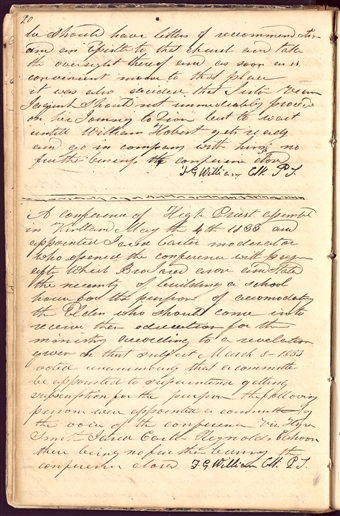 20
he should have letters of recommendation
and an Epistle to that church and take
the oversight thereof and as soon as is
convenient move to that place
it was also decided that Sister Vienna
Jaques should not immediately proceed
on her Journey to Zion but to wait
untill William Hobert gets ready
and go in company with him no
further business the conference closed
F G William Clk. P. T.
A conference of High Priest assembled
in Kirtland May the 4th 1833 and
appointed Jared Carter moderator
who opened the conference with prayer
after which Bro Jared arose and stated
the necesity of building a school
house for the purpose of accomodating
the Elders who should come in to
receive their education for the
ministry according to a revelation
given on that subject March 8- 1833
voted unanimously that a committee
be appointed to superintend getting
subscription for the purpose the following
persons were appointed a committee by
the voice of the conference Viz Hyrum
Smith Jared Carter Reynolds Cahoon
there being no further business the
conference closed F G William Clk. P. T.